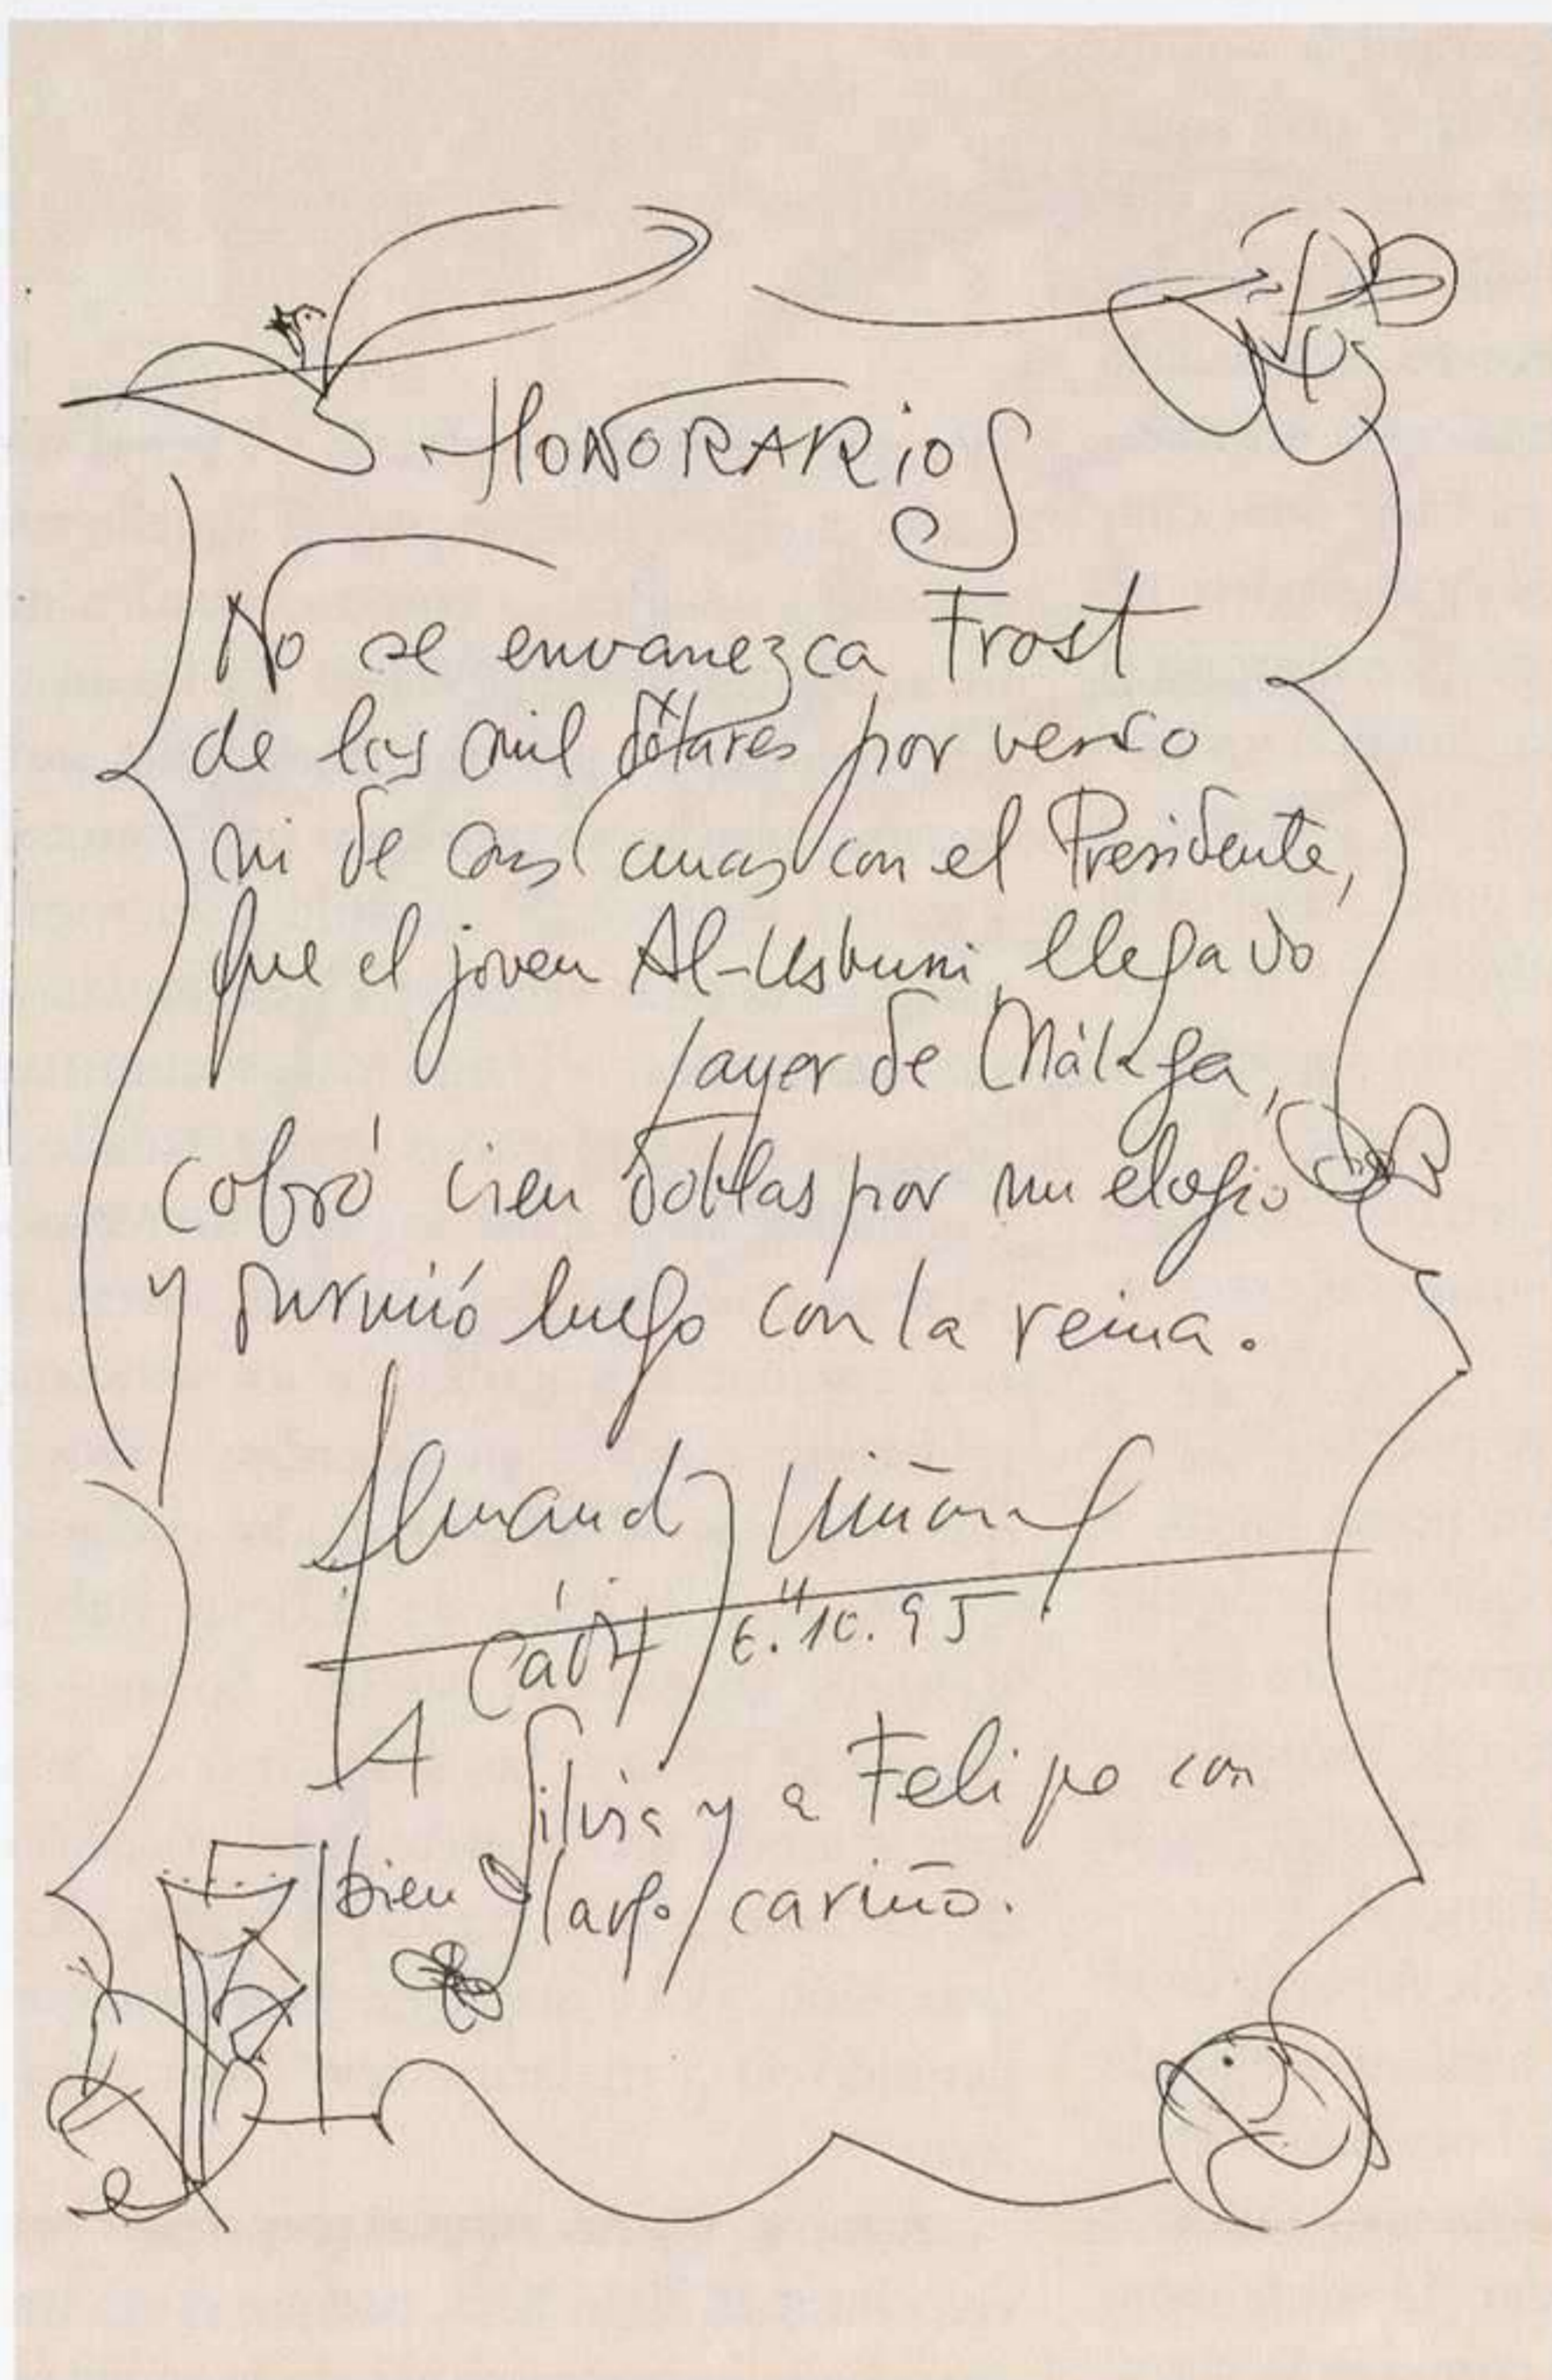 HONORARIOS
No se envanezca Frost
de los mil dólares por verso
ni de sus cenas con el Presidente,
que el joven Al-Usbuni llegado
ayer de Málaga,
cobró cien doblas por un elogio
y durmió luego con la reina.
Cádiz 6.10.95
A Silvia y a Felipe con
bien largo cariño.